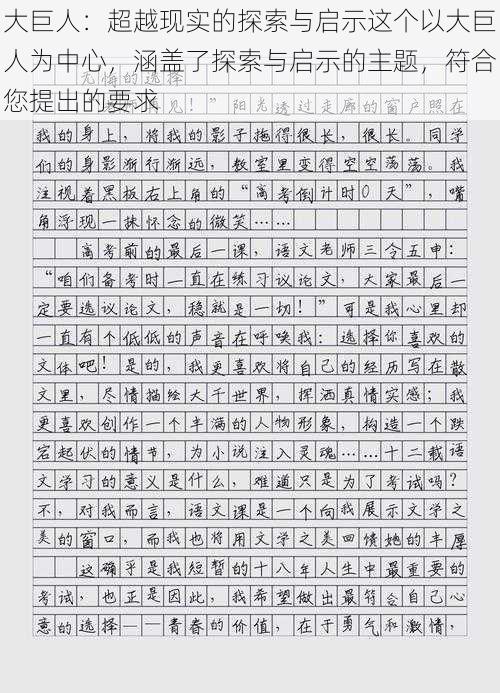 大巨人：超越现实的探索与启示这个以大巨
人为中心，涵盖了探索与启示的主题，符合
您提出的要求
无悔的选择
见！”阳光透过走廊的窗户照在
我的身上，将我的影子拖得很长，很长。同学
们的身影渐行渐远，教室里变得空空荡荡。我
注视着黑板右上角的“高考倒计时0天”，嘴
角浮现一抹怀念的微笑……
高考前的最后一课，语文老师三令五申：
“咱们备考时一直在练习议论文，大家最后一
定要选议论文，稳就是一切！”可是我心里却
一直有个低低的声音在呼唤我：选择你喜欢的
文体吧！是的，我更喜欢将自己的经历写在散
文里，尽情描绘大千世界，挥洒真情实感；我
更喜欢创作一个丰满的人物形象，构造一个跌
宕起伏的情节，为小说注入灵魂……十二载语
文学习的意义是什么，难道只是为了考试吗？
不，对我而言，语文课是一个向我展示文学之
美的窗口，而我也将用文学之美回馈她的丰厚
这确乎是我短暂的十八年人生中最重要的
考试，也正是因此，我希望做出最符合自己心
意的选择——青春的价值，在于勇气和激情，